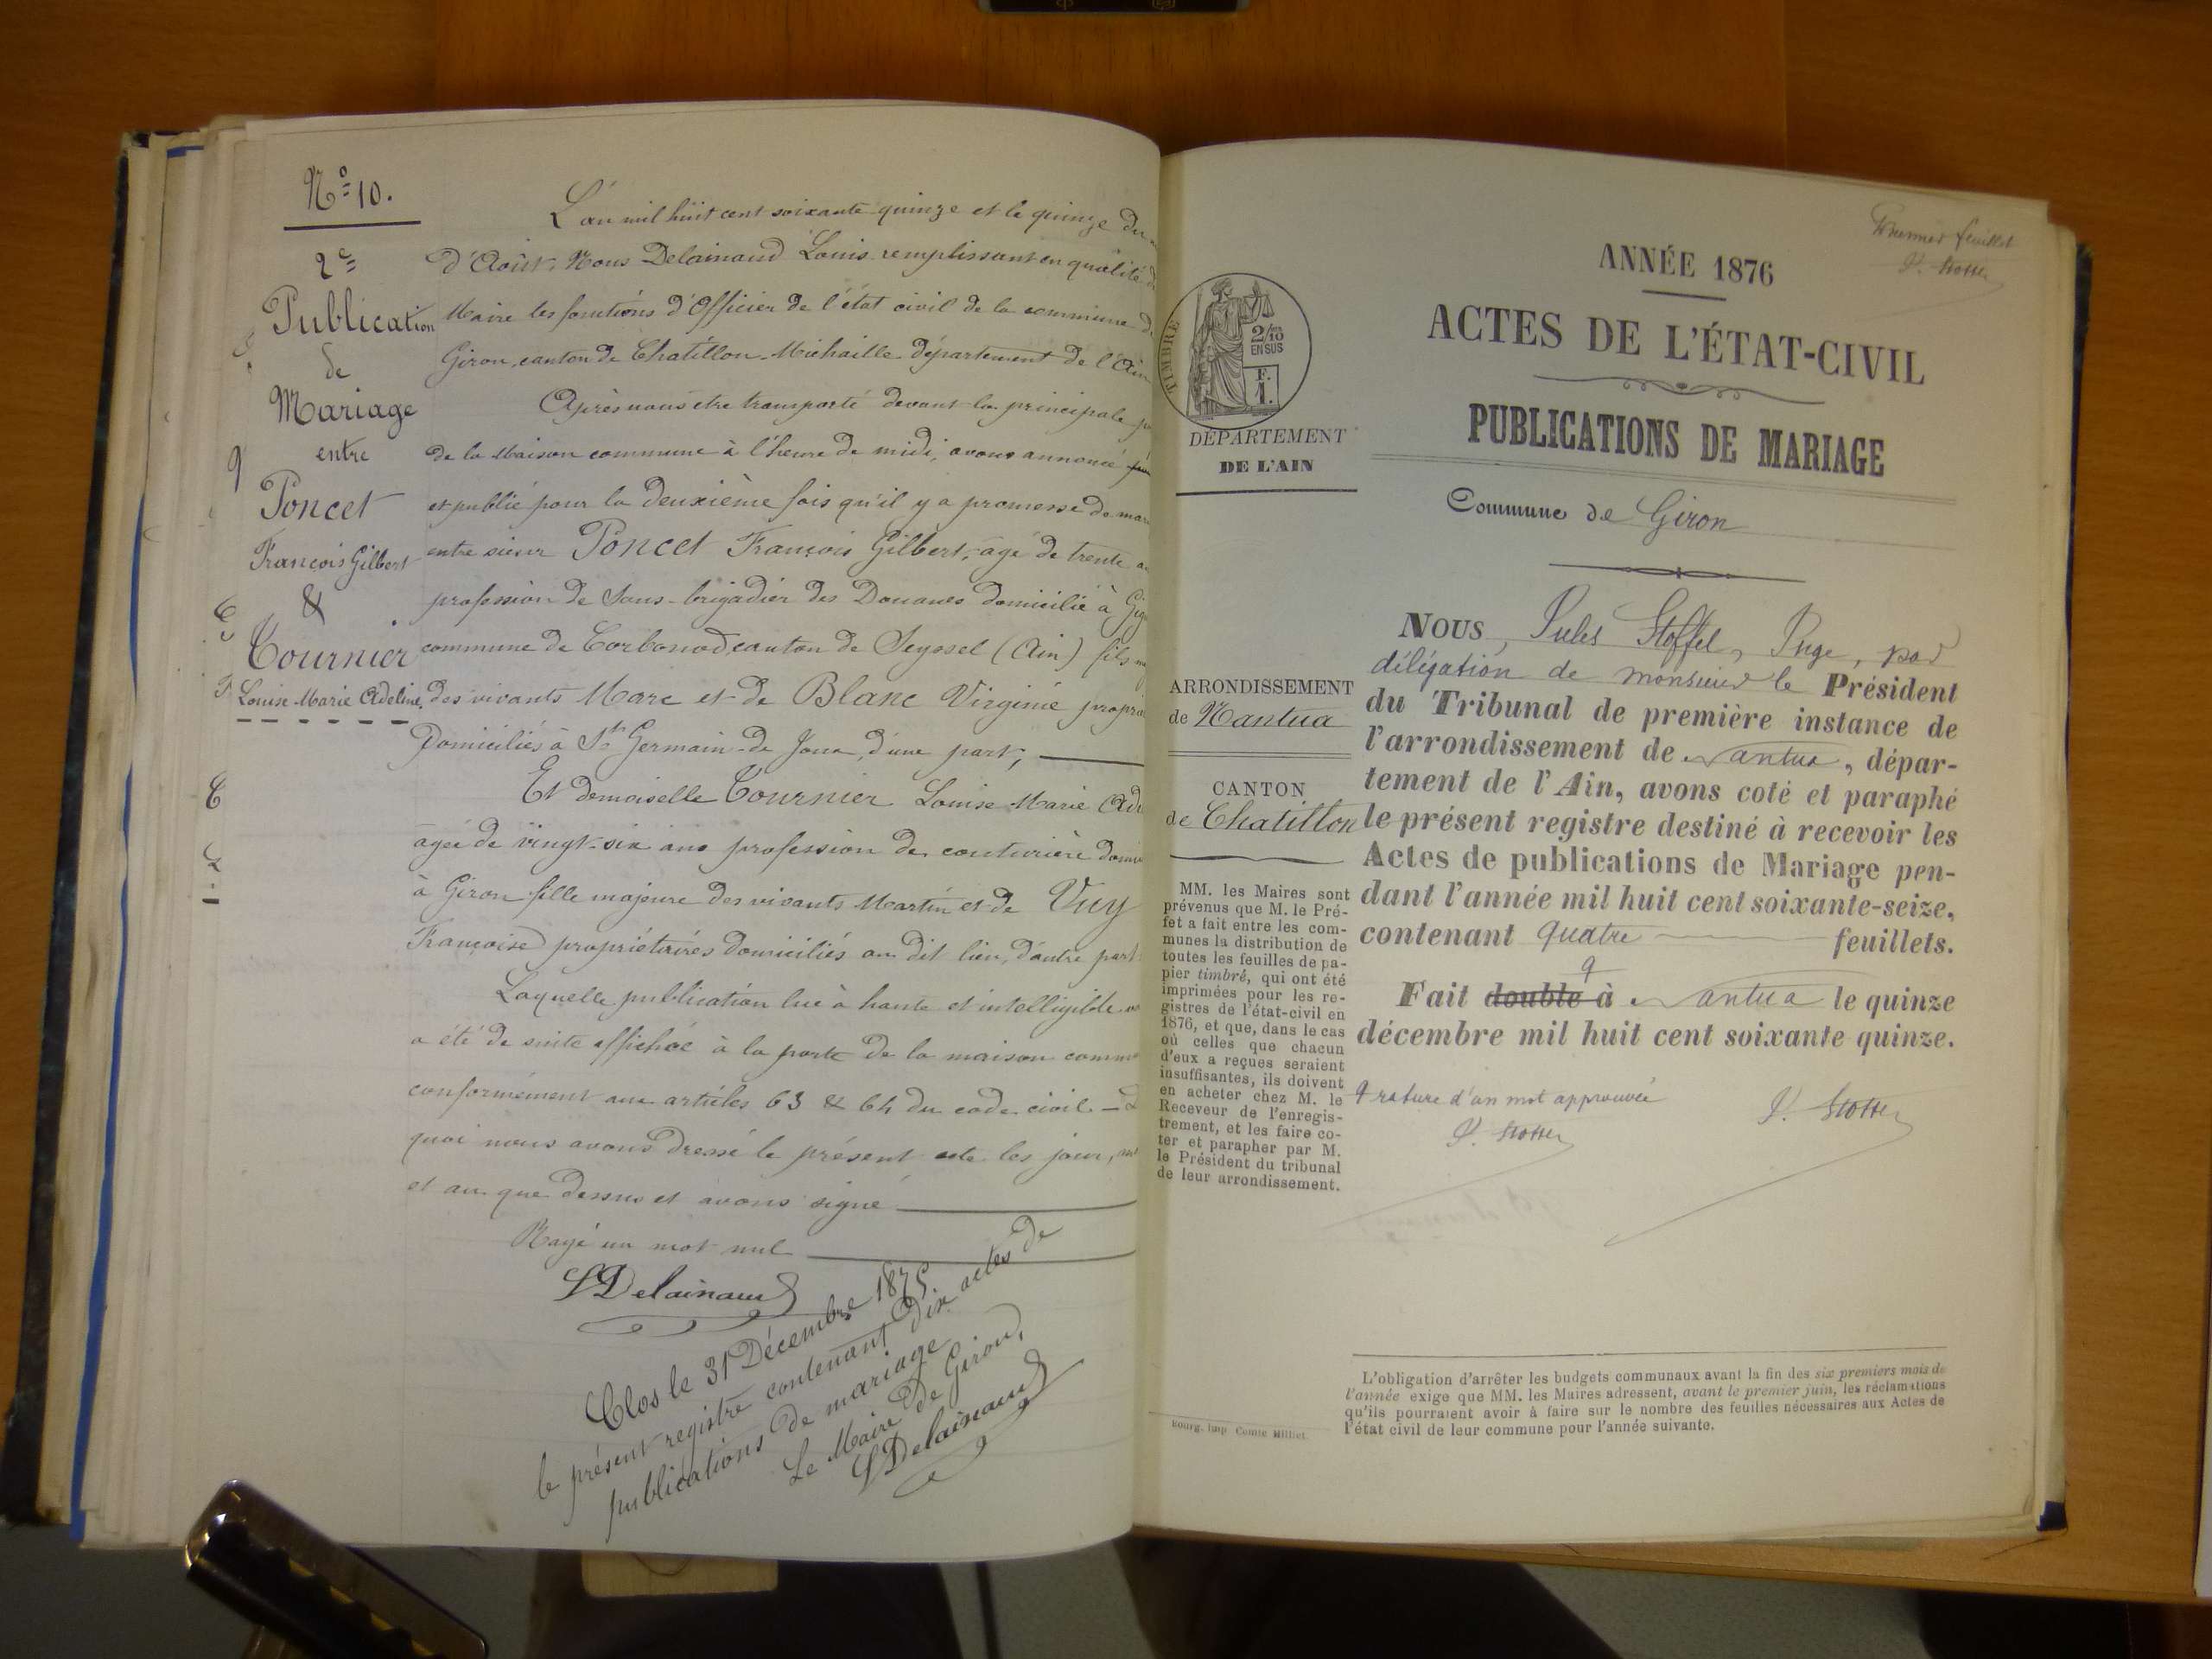 Nº 10.
2e
Publication
de
Mariage
entre
Poncet
François Gilbert
&
Tournier
Louise Marie Adeline.
L'an mil huit cent soixante quinze et le quinze du
d'Août. Nous Delainaud Louis remplissant en qualité de
Maire les fonctions d'Officier de l'état civil de la commune de
Giron, canton de Chatillon-Michaille département de l'Ain
Après nous être transporté devant la principale
de la Maison commune à l'heure de midi, avons annoncé
et publié pour la deuxième fois qu'il y a promesse de mar
entre sieur Poncet François Gilbert, agé de trente
profession de Sous-brigadier des Douanes domicilié à
commune de Corbonod, canton de Seyssel (Ain) fils
des vivants Marc et de Blanc Virginie
Domiciliés à St Germain-de Joux, d'une part,
Et demoiselle Tournier Louise Marie Ade
agée de vingt-six ans profession de couturière domi
à Giron fille majeure des vivants Martin et de Vuy
Françoise propriétaires domiciliés au dit lieu, d'autre part
Laquelle publication lue à haute et intelligible
a été de suite affichée à la porte de la maison comm
conformément aux articles 63 & 64 du code civil. - D
quoi nous avons dressé le présent acte les jour,
et an que dessus et avons signé
Rayé un mot nul
LDelainaud
Clos le 31 Décembre 1875
le présent registre contenant dix actes de
publications de mariage
Le Maire de Giron,
LDelainaud
Premier feuillet
J. Stoffel
TIMBRE
2/10
EN SUS
F.
1.
DÉPARTEMENT
DE L'AIN
ANNÉE 1876
ACTES DE L'ÉTAT-CIVIL
PUBLICATIONS DE MARIAGE
Commune de Giron
ARRONDISSEMENT
de Nantua
CANTON
de Chatillon
MM. les Maires sont
prévenus que M. le Pré-
fet a fait entre les com-
munes la distribution de
toutes les feuilles de pa-
pier timbré, qui ont été
imprimées pour les re-
gistres de l'état-civil en
1876, et que, dans le cas
où celles que chacun
d'eux a reçues seraient
insuffisantes, ils doivent
en acheter chez M. le
Receveur de l'enregis-
trement, et les faire co-
ter et parapher par M.
le Président du tribunal
de leur arrondissement.
NOUS, Jules Stoffel, Juge, par
délégation de monsieur le Président
du Tribunal de première instance de
l'arrondissement de Nantua, dépar-
tement de l'Ain, avons coté et paraphé
le présent registre destiné à recevoir les
Actes de publications de Mariage pen-
dant l'année mil huit cent soixante-seize,
contenant quatre feuillets.
Fait double à Nantua le quinze
décembre mil huit cent soixante quinze.
rature d'un mot approuvée
J. Stoffel
J. Stoffel
L'obligation d'arrêter les budgets communaux avant la fin des six premiers mois de
l'année exige que MM. les Maires adressent, avant le premier juin, les réclamations
qu'ils pourraient avoir à faire sur le nombre des feuilles nécessaires aux Actes de
l'état civil de leur commune pour l'année suivante.
Bourg, imp Comte Milliet